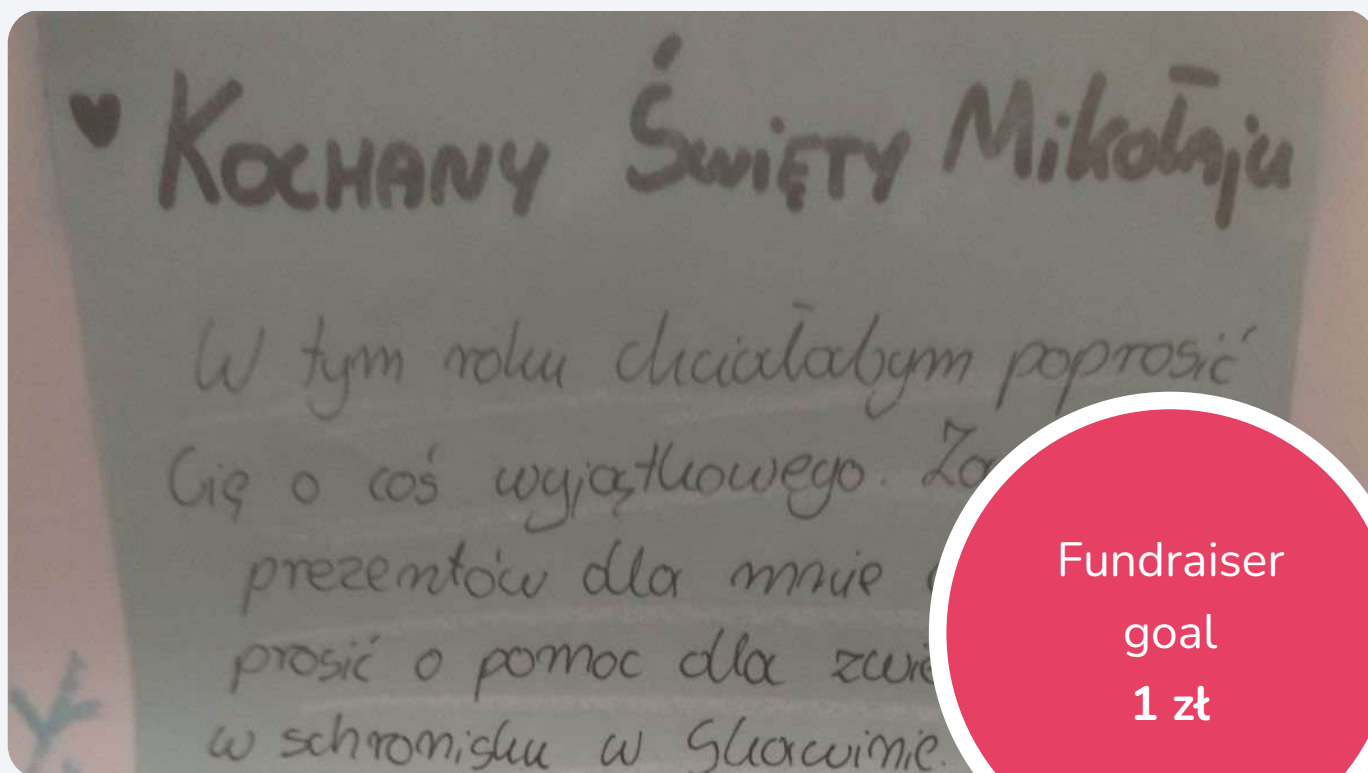 Kochany Święty Mikołaju
W tym roku chciałabym poprosić
Cię o coś wyjątkowego. Za
prezentów dla mnie
prosić o pomoc dla zwie
w schronisku w Skawinie.
Fundraiser
goal
1 zł